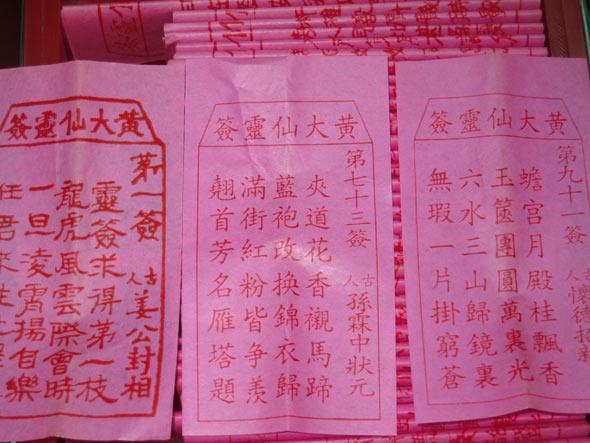 黃大仙靈簽
第一簽
古人 姜公封相
靈簽求得第一枝
龍虎風雲際會時
一旦凌霄揚自樂
任君來往
黃大仙靈簽
第七十三簽
古人 孫霖中狀元
夾道花香襯馬蹄
藍袍改換錦衣歸
滿街紅粉皆爭羨
翹首芳名雁塔題
黃大仙靈簽
第九十一簽
古人 懷德招親
蟾宮月殿桂飄香
玉篋團圓萬裏光
六水三山歸鏡裏
無瑕一片掛窮蒼